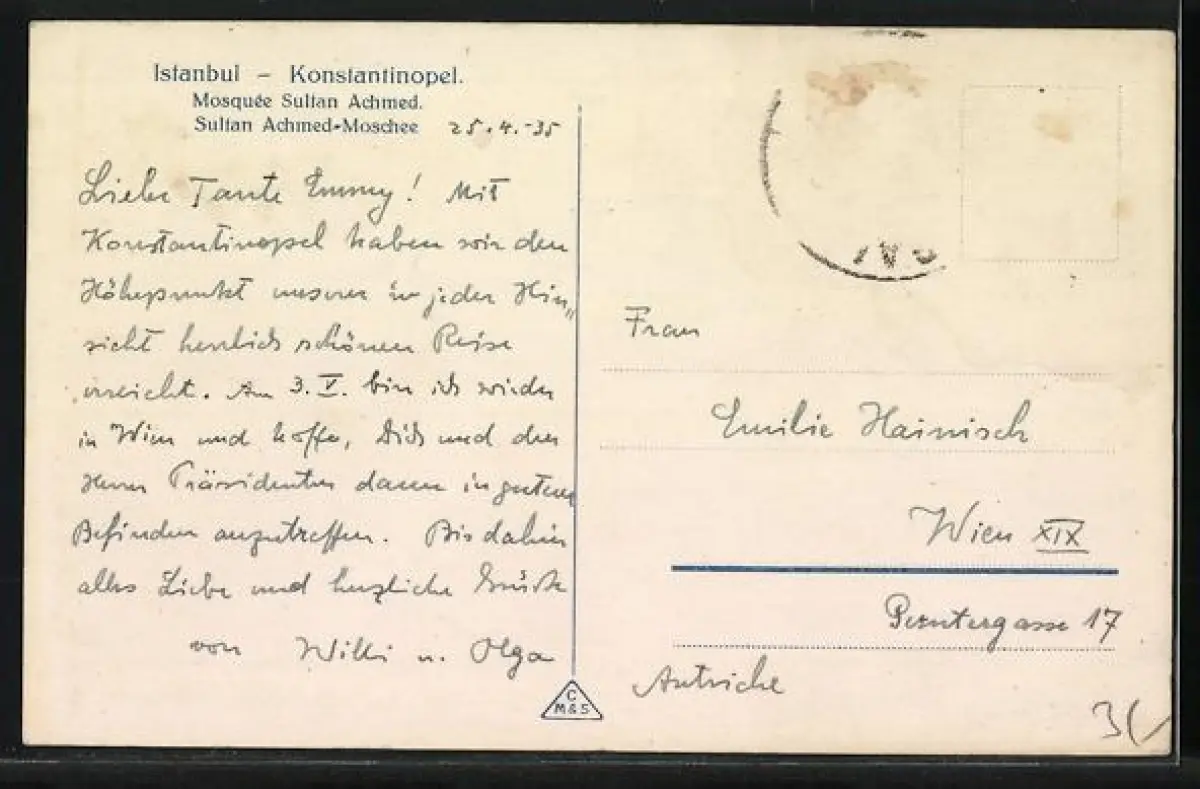 Istanbul – Konstantinopel.
Mosquée Sultan Achmed.
Sultan Achmed-Moschee 25.4.-35
Liebe Tante Emmy! Mit
Konstantinopel haben wir den
Höhepunkt unserer in jeder Hin„
sicht herrlich schönen Reise
erreicht. Am 3. V. bin ich wieder
in Wien und hoffe, Dich und den
Herrn Präsidenten dann in gutem
Befinden anzutreffen. Bis dahin
alles Liebe und herzliche Grüße
von Willi u. Olga
C
M&S
Frau
Emilie Hainisch
Wien XIX
Perntergasse 17
Autriche